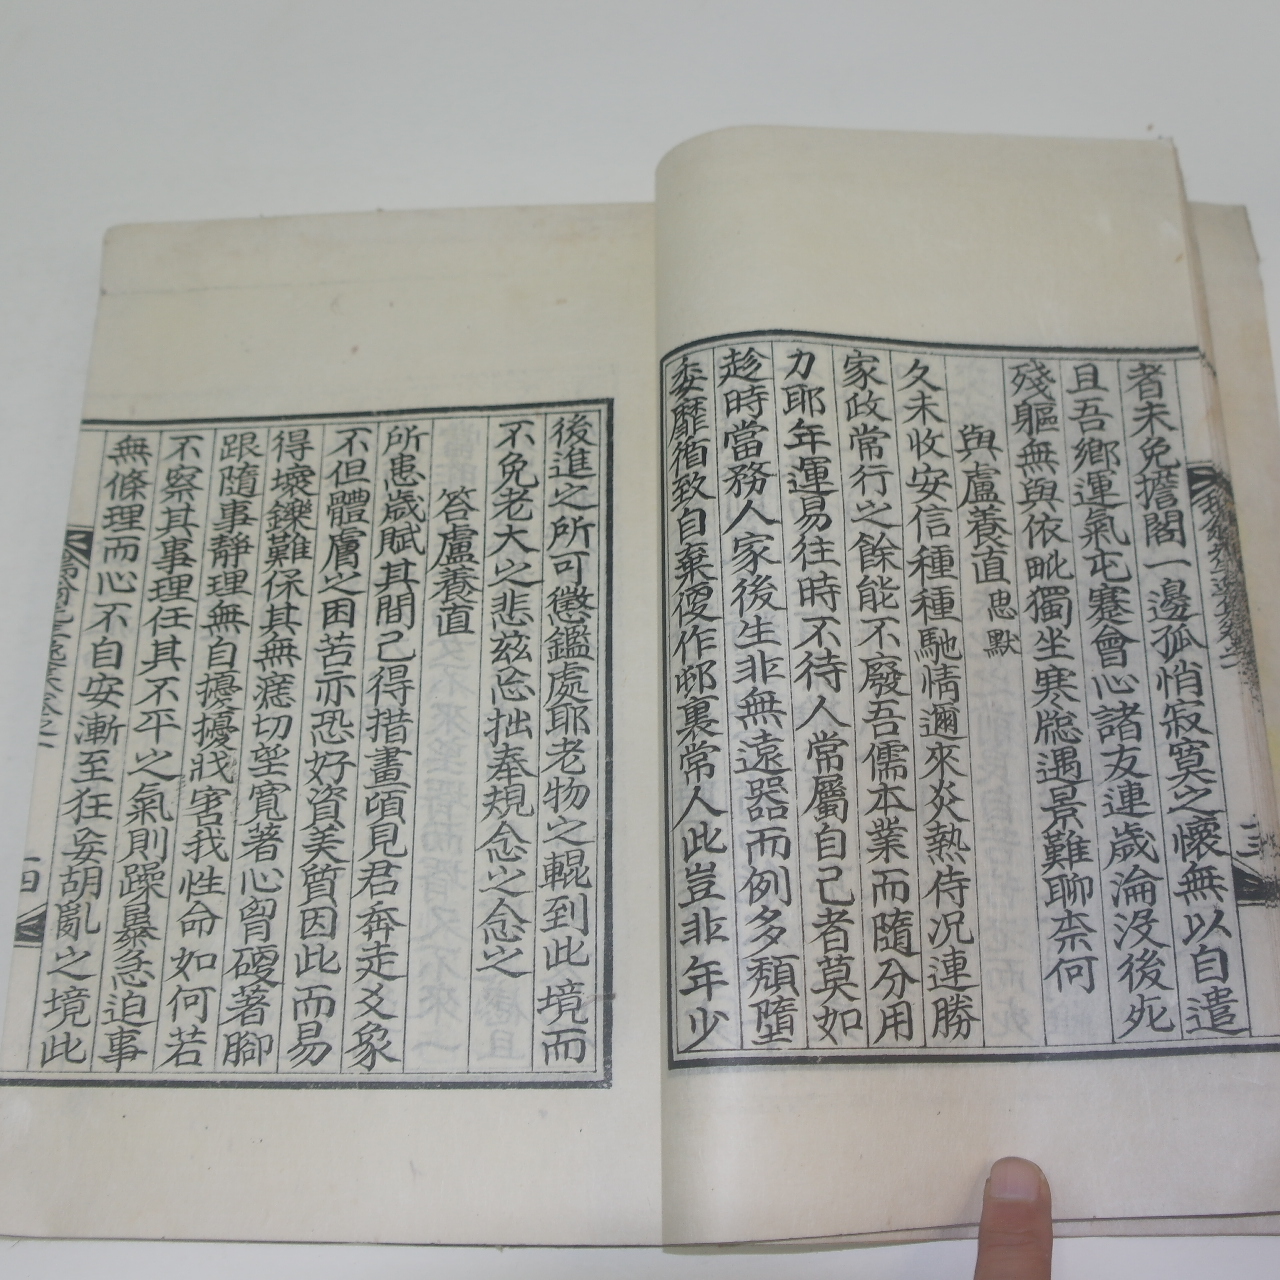 者未免擔閣一邊孤悄寂寞之懷無以自遣
且吾鄉運氣屯蹇會心諸友連歲淪沒後死
殘軀無與依毗獨坐寒牕遇景難聊柰何
與盧養直忠默
久未收安信種種馳情邇來炎熱侍况連勝
家政常行之餘能不廢吾儒本業而隨分用
力耶年運易往時不待人常屬自己者莫如
趁時當務人家後生非無遠器而例多頹墮
委靡循致自棄便作邨裏常人此豈非年少
後進之所可懲鑑處耶老物之輥到此境而
不免老大之悲玆忘拙奉規念之念之
答盧養直
所患歲賦其間已得措畫頃見君奔走爻象
不但體膚之困苦亦恐好資美質因此而易
得壞鑠難保其無痣切望寬著心胷硬著腳
跟隨事靜理無自擾擾戕害我性命如何若
不察其事理任其不平之氣則躁暴急迫事
無條理而心不自安漸至狂妄胡亂之境此